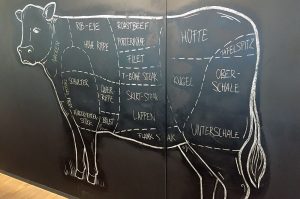 RIB-EYE
ROASTBEEF
HOHE RIPPE
PORTERHOUSE
FILET
HÜFTE
TAFELSPITZ
T-BONE STEAK
KUGEL
OBER-
SCHALE
SCHULTER
QUER
RIPPE
SKIRT-STEAK
LAPPEN
BRUST
UNTERSCHALE
FLANK